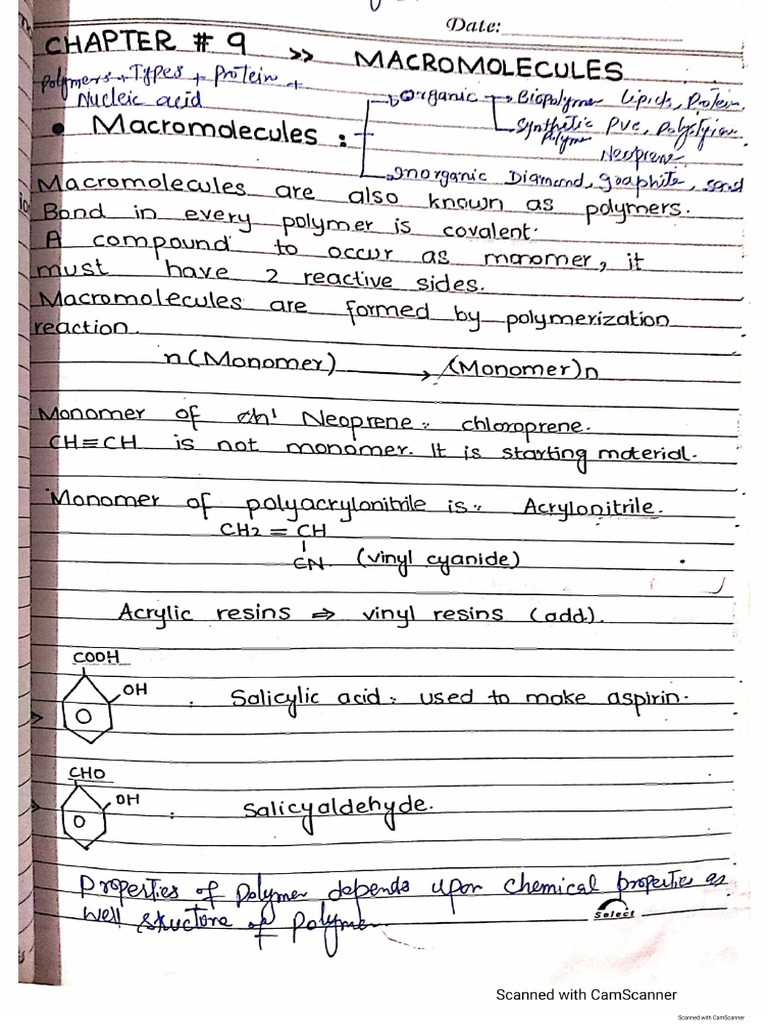 Date:
CHAPTER # 9 >> MACROMOLECULES
Polymers + Types + Protein +
Nucleic acid
Organic → Biopolymer Lipids, Protein,
Synthetic Polymer PVC, Polystyren
Neoprene
Inorganic Diamond, graphite, sand
• Macromolecules :
Macromolecules are also known as polymers.
Bond in every polymer is covalent.
A compound to occur as monomer, it
must have 2 reactive sides.
Macromolecules are formed by polymerization
reaction.
n(Monomer) → (Monomer)n
Monomer of Neoprene : chloroprene.
CH≡CH is not monomer. It is starting material.
Monomer of polyacrylonitrile is : Acrylonitrile.
CH2 = CH
CN (vinyl cyanide)
Acrylic resins ⇒ vinyl resins (add).
COOH
OH : Salicylic acid : used to make aspirin.
CHO
OH : Salicyaldehyde.
Properties of polymer depends upon chemical properties as
well structure of polyme
Select
Scanned with CamScanner
Scanned with CamScanner